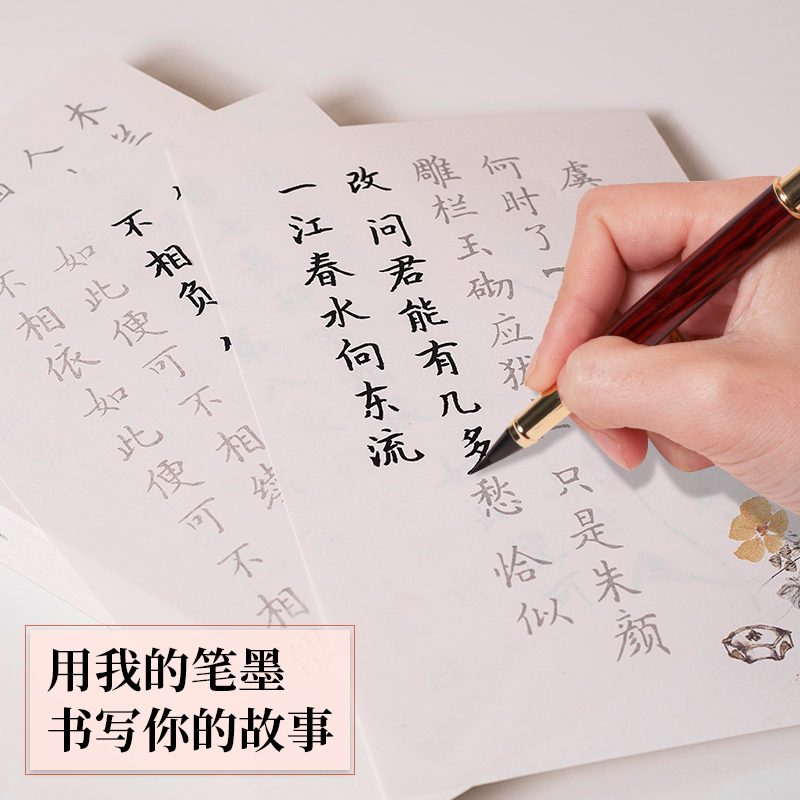 虞
何时了
雕栏玉砌应犹
只是朱颜
改 问君能有几多愁 恰似
一江春水向东流
木兰
人
不相负
如此便可不相
不相依 如此便可不相
用我的笔墨
书写你的故事